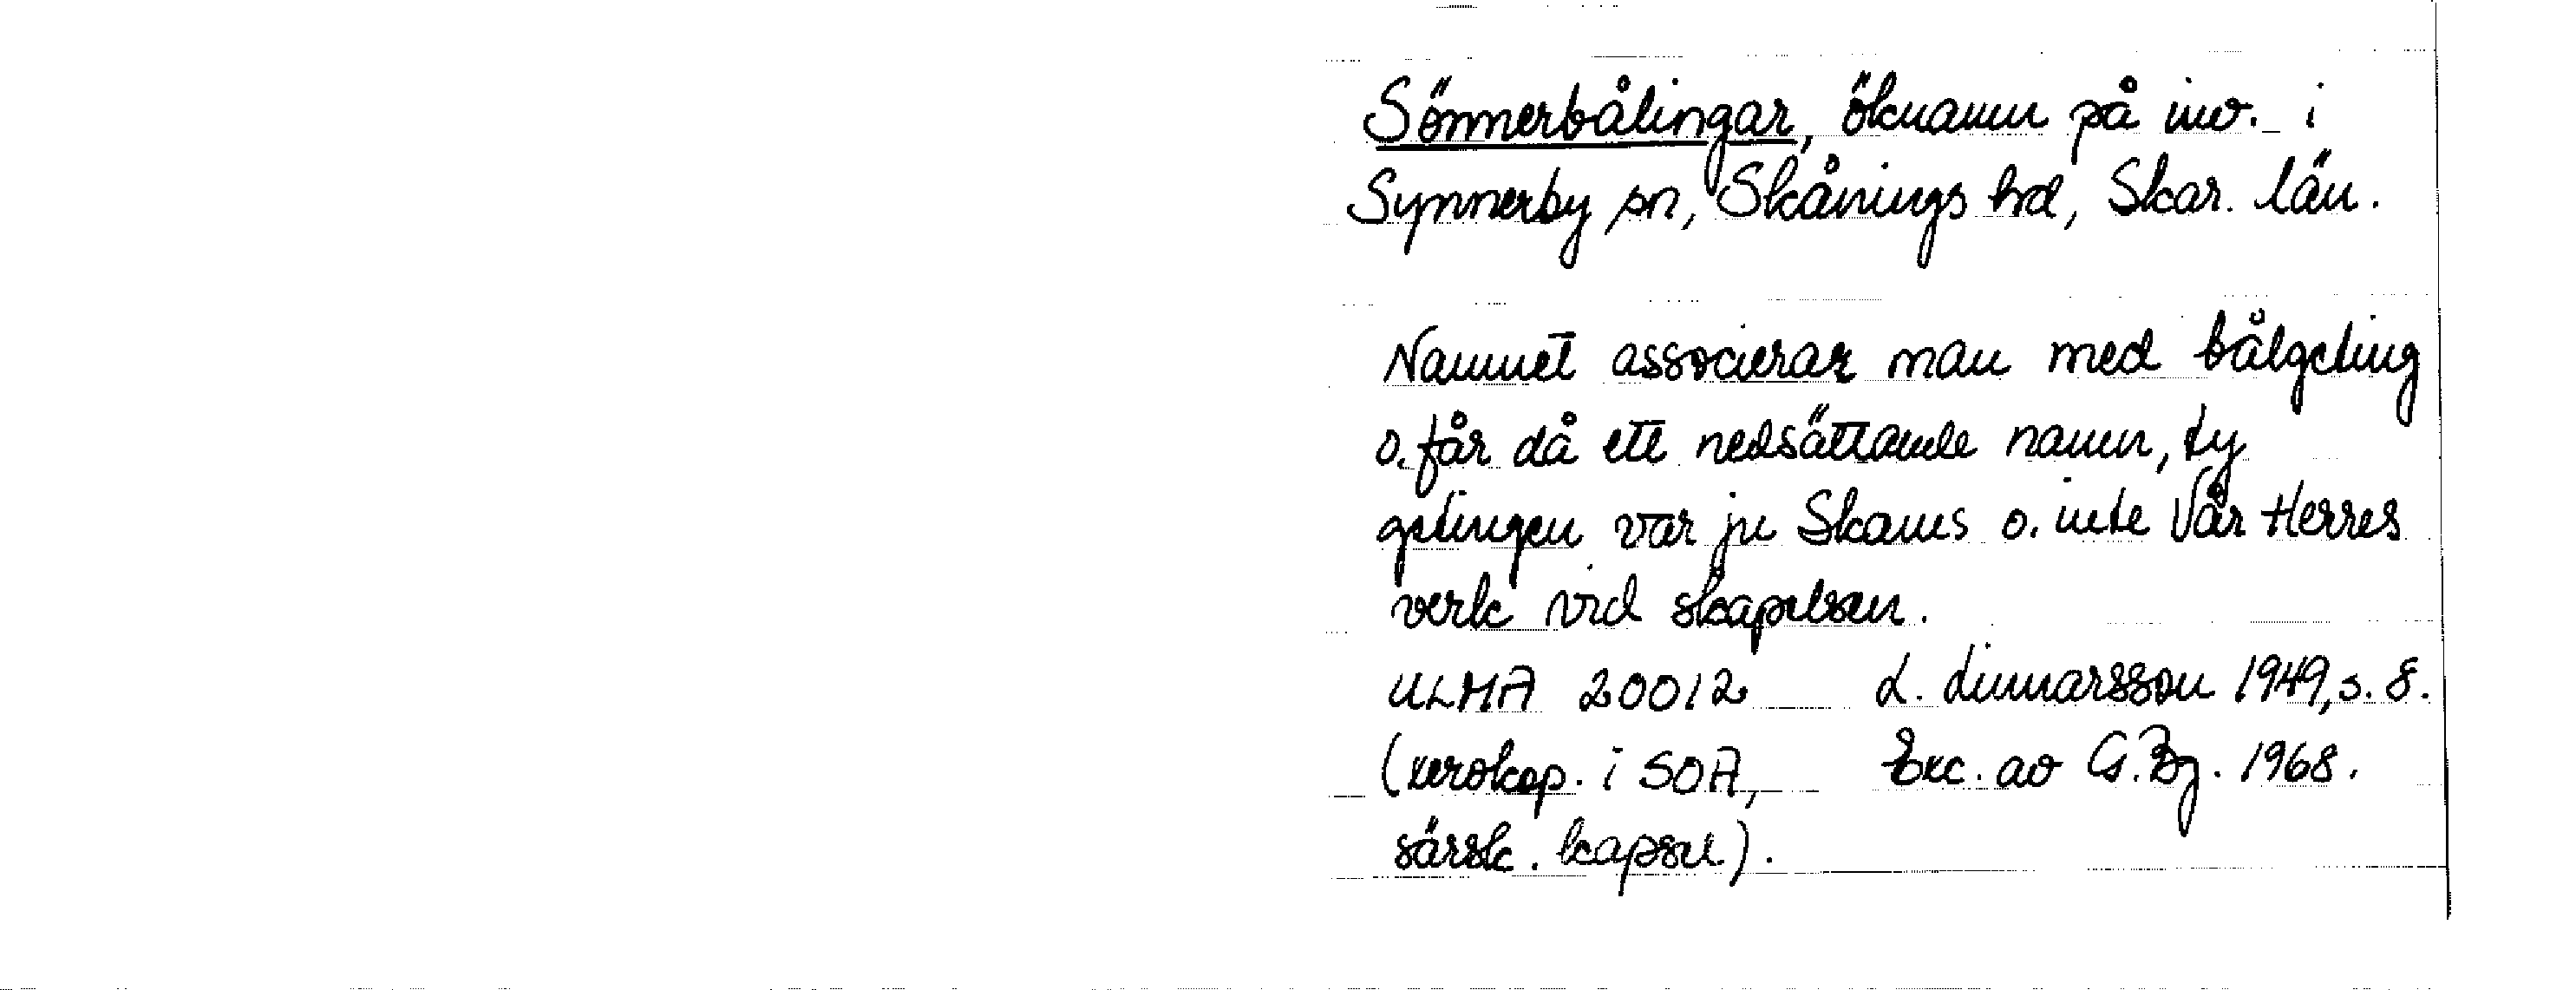 Sönnerbålingar, öknamn på inv. i
Synnerby sn, Skånings hd, Skar. län.
Namnet associerar man med bålgeting
o. får då ett nedsättande namn, ty
getingen var ju Skams o. inte Vår Herres
verk vid skapelsen.
ULMA 20012 L. Linnarsson 1949, s. 8.
(xerokop. i SOA, Exc. av G. Bg. 1968.
särsk. kapsel).